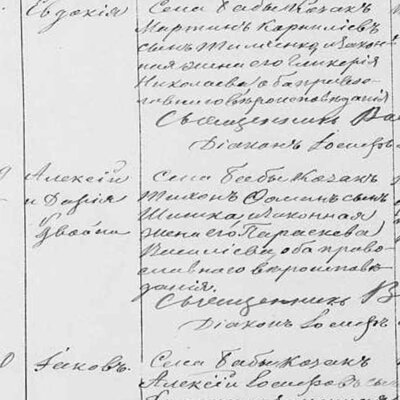 Евдокія
Села Бабы Козакъ
Мартинъ Карниліевъ
сынъ Тимченко, закон-
ная жена его Гликерія
Николаева, оба право-
славнаго вѣроисповѣданія
Священникъ
Діаконъ Іосифъ
Алексій
и Дарія
Двойни
Села Бабы Козакъ
Тихонъ Фоминъ сынъ
Шишка, законная
жена его Параскева
Василіева, оба право-
славнаго вѣроисповѣ-
данія.
Священникъ В
Діаконъ Іосифъ
Іаковъ.
Села Бабы Козакъ
Алексій Іосифовъ сы